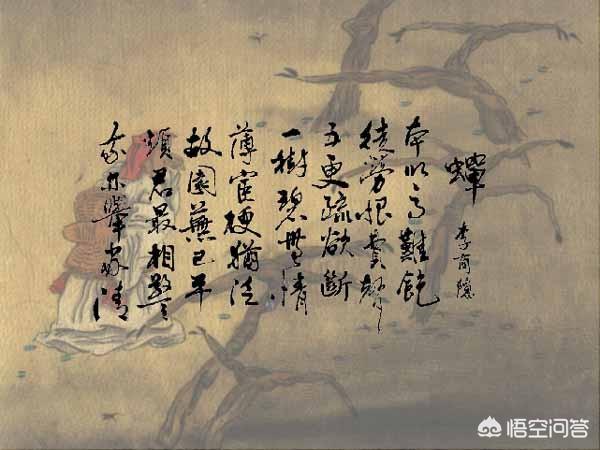 蟬
李商隱
本以高難飽
徒勞恨費聲
五更疏欲斷
一樹碧無情
薄宦梗猶泛
故園蕪已平
煩君最相警
我亦舉家清
悟空问答